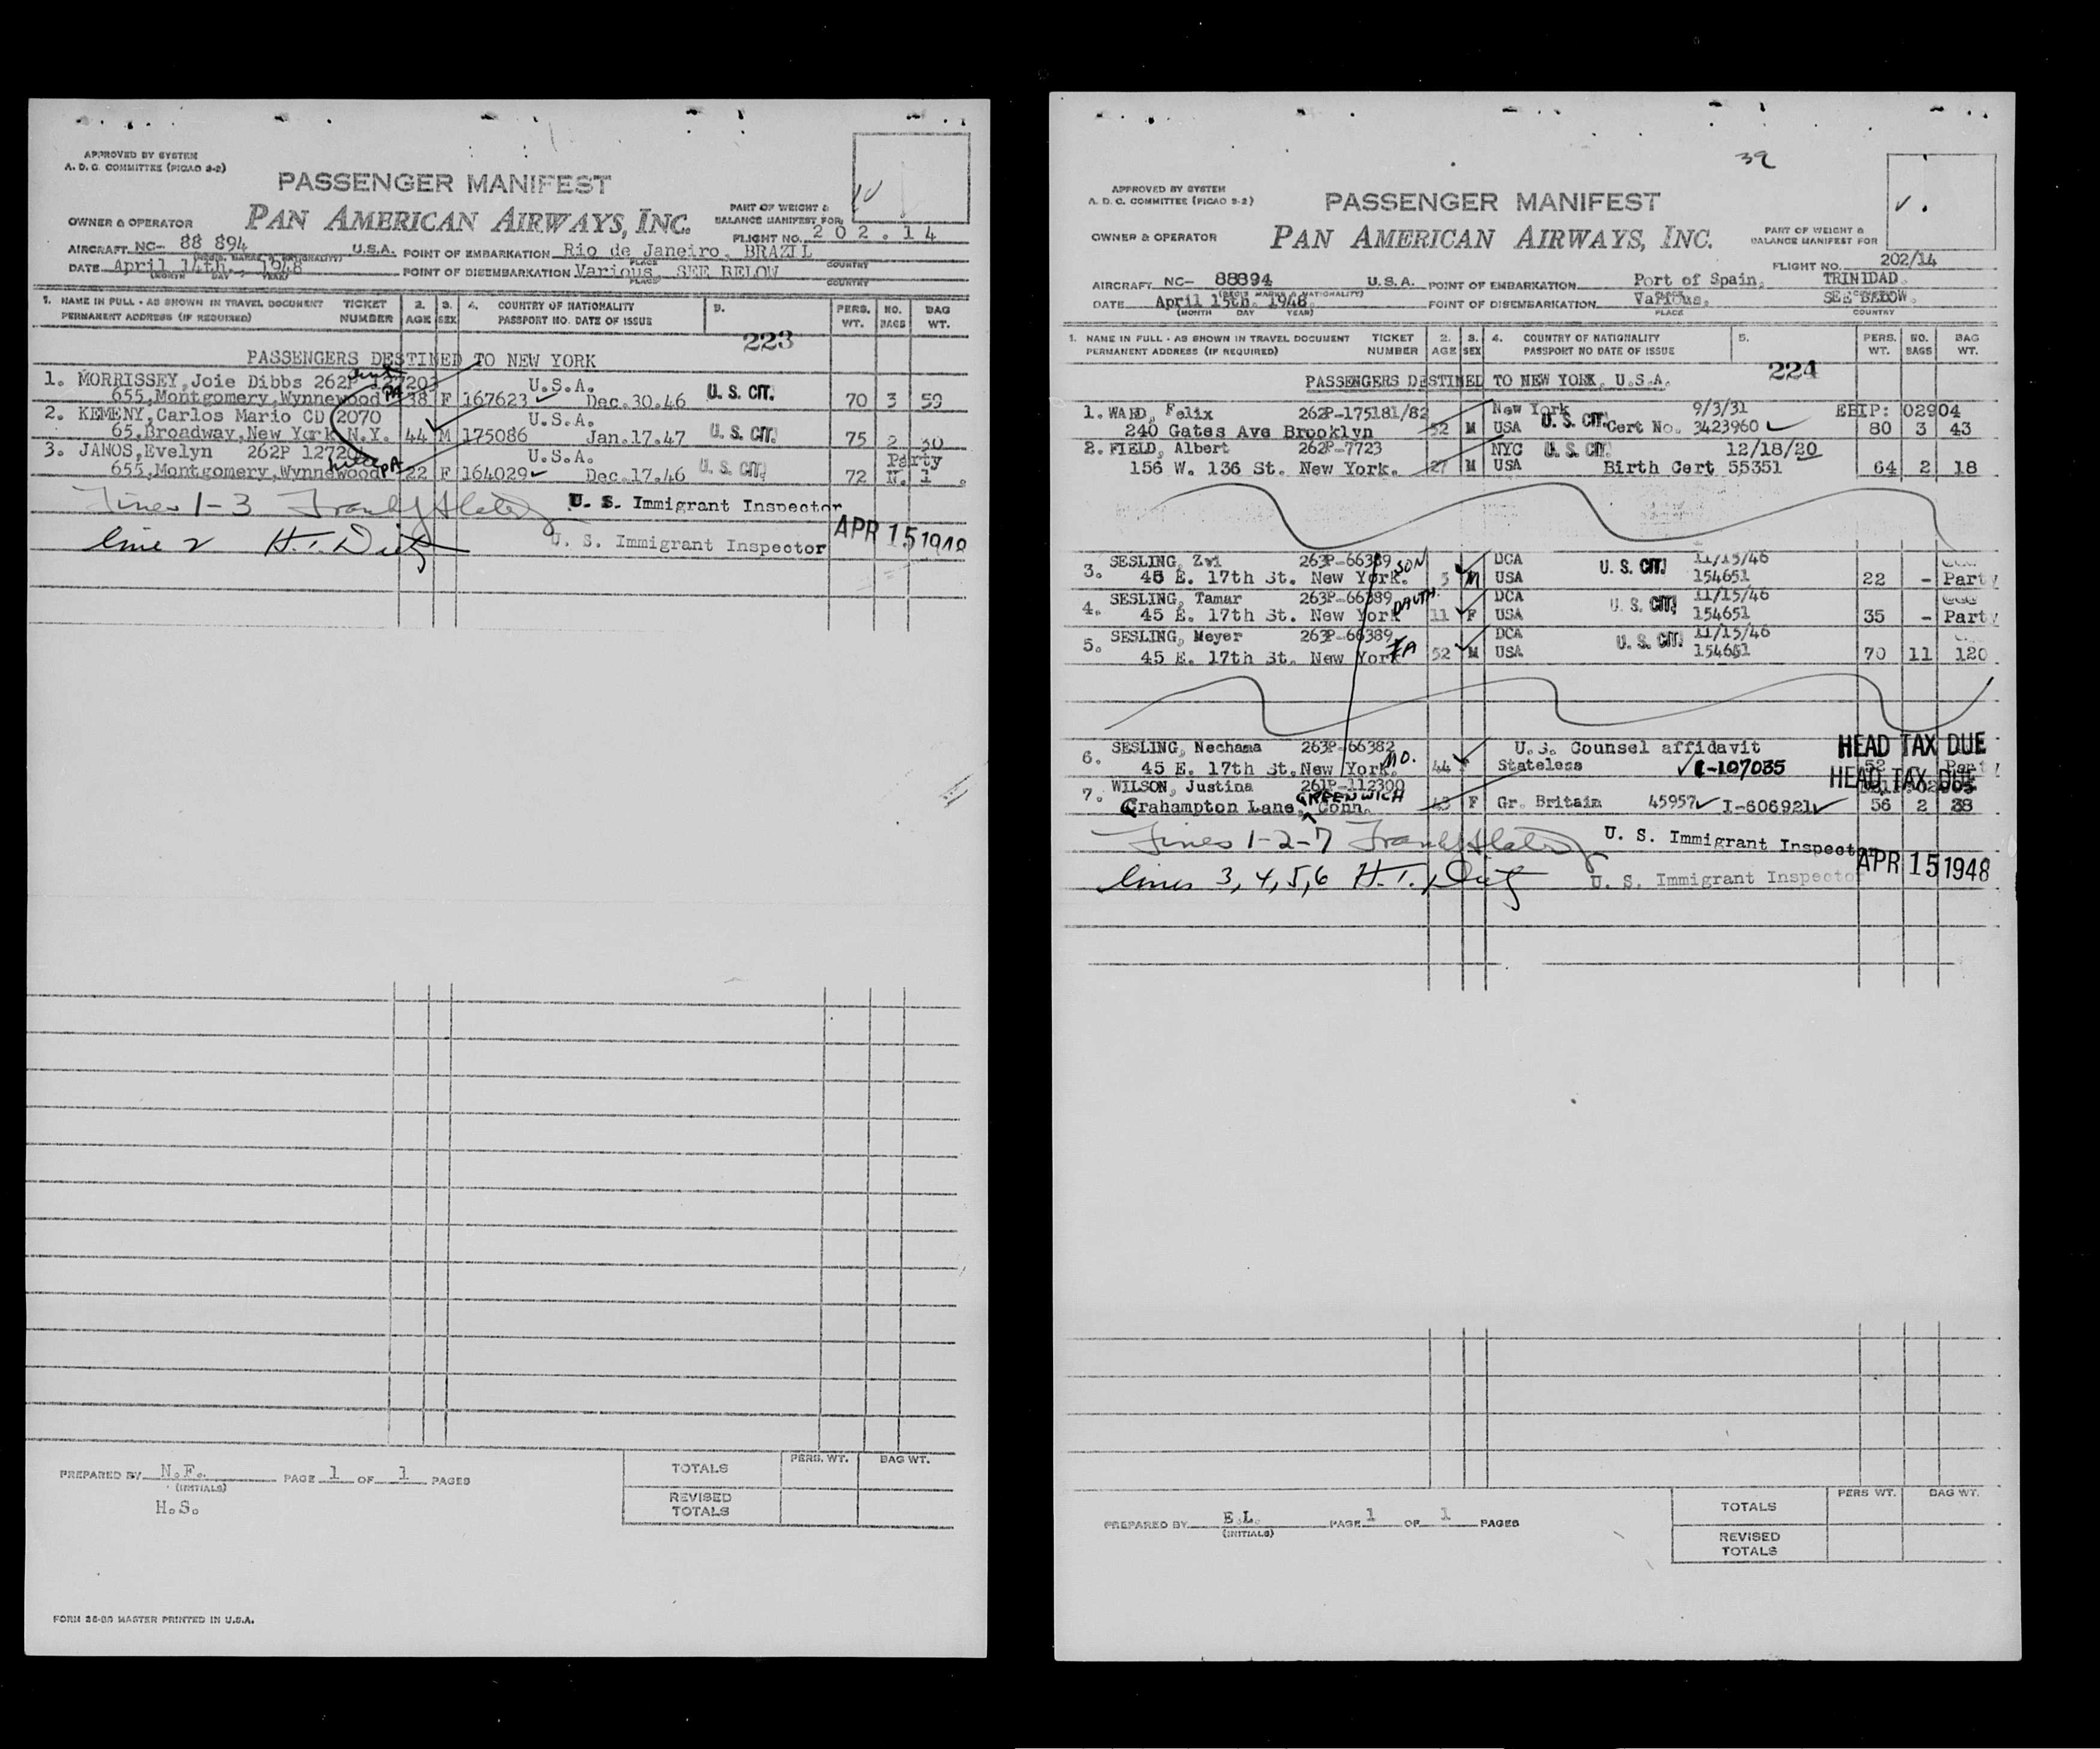 APPROVED BY SYSTEM
A. D. C. COMMITTEE (PICAO 9-2)
PASSENGER MANIFEST
OWNER & OPERATOR PAN AMERICAN AIRWAYS, INC.
PART OF WEIGHT &
BALANCE MANIFEST FOR
FLIGHT NO. 202.14
AIRCRAFT NC- 88 894 U.S.A. POINT OF EMBARKATION Rio de Janeiro, BRAZIL
PLACE COUNTRY
DATE April 14th., 1948 POINT OF DISEMBARKATION Various SEE BELOW
(MONTH DAY YEAR) PLACE COUNTRY
1. NAME IN FULL - AS SHOWN IN TRAVEL DOCUMENT TICKET 2. 3. 4. COUNTRY OF NATIONALITY 5. PERS. NO. BAG
PERMANENT ADDRESS (IF REQUIRED) NUMBER AGE SEX PASSPORT NO. DATE OF ISSUE WT. BAGS WT.
223
PASSENGERS DESTINED TO NEW YORK
1. MORRISSEY, Joie Dibbs 262P 127203 U.S.A.
655, Montgomery, Wynnewood PA 38 F 167623 Dec.30.46 U. S. CIT. 70 3 59
2. KEMENY, Carlos Mario CD 2070 U.S.A.
65, Broadway, New York N.Y. 44 M 175086 Jan.17.47 U. S. CIT. 75 2 30
3. JANOS, Evelyn 262P U.S.A. Party
655, Montgomery, Wynnewood PA 22 F 164029 Dec.17.46 U. S. CIT. 72 N. 1.
Lines 1-3 U. S. Immigrant Inspector
line 2 H.T. U. S. Immigrant Inspector APR 15 1948
PREPARED BY N.F. PAGE 1 OF 1 PAGES
(INITIALS)
H.S.
PERS. WT. BAG WT.
TOTALS
REVISED
TOTALS
FORM 36-68 MASTER PRINTED IN U.S.A.
39
APPROVED BY SYSTEM
A. D. C. COMMITTEE (PICAO 9-2)
PASSENGER MANIFEST
OWNER & OPERATOR PAN AMERICAN AIRWAYS, INC.
PART OF WEIGHT &
BALANCE MANIFEST FOR
FLIGHT NO. 202/14
AIRCRAFT NC- 88894 U.S.A. POINT OF EMBARKATION Port of Spain, TRINIDAD.
DATE April 15th. 1948. POINT OF DISEMBARKATION Various. SEE BELOW.
(MONTH DAY YEAR) PLACE COUNTRY
1. NAME IN FULL - AS SHOWN IN TRAVEL DOCUMENT TICKET 2. 3. 4. COUNTRY OF NATIONALITY 5. PERS. NO. BAG
PERMANENT ADDRESS (IF REQUIRED) NUMBER AGE SEX PASSPORT NO DATE OF ISSUE WT. BAGS WT.
224
PASSENGERS DESTINED TO NEW YORK, U.S.A.
1. WARD, Felix 262P-175181/82 New York 9/3/31 EBIP: 02904
240 Gates Ave Brooklyn 52 M USA U. S. CIT. Cert No. 3423960 80 3 43
2. FIELD, Albert 262P-7723 NYC U. S. CIT. 12/18/20
156 W. 136 St. New York. 27 M USA Birth Cert 55351 64 2 18
3. SESLING, Zvi 263P-66389 SON DCA U. S. CIT. 11/15/46
45 E. 17th St. New York. 5 M USA 154651 22 - Party
4. SESLING, Tamar 263P-66389 DAUTH. DCA U. S. CIT. 11/15/46
45 E. 17th St. New York 11 F USA 154651 35 - Party
5. SESLING, Meyer 263P-66389 FA DCA U. S. CIT. 11/15/46
45 E. 17th St. New York 52 M USA 154651 70 11 120
6. SESLING, Nechama 263P-66382 MO. U.S. Counsel affidavit HEAD TAX DUE
45 E. 17th St. New York. 44 Stateless I-107035 52 Party
HEAD TAX DUE
7. WILSON, Justina 261P-112300
GREENWICH
Grahampton Lane, Conn. 43 F Gr. Britain 45957 I-606921 56 2 38
Lines 1-2-7 U. S. Immigrant Inspector
lines 3, 4, 5, 6 H.T. U. S. Immigrant Inspector APR 15 1948
PREPARED BY E.L. PAGE 1 OF 1 PAGES
(INITIALS)
PERS WT. BAG WT.
TOTALS
REVISED
TOTALS